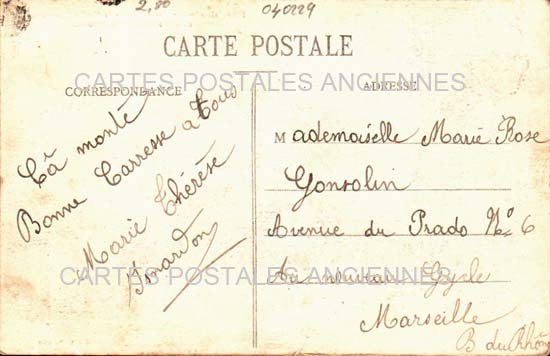 2,80
040229
CARTE POSTALE
CARTES POSTALES ANCIENNES
CORRESPONDANCE
ADRESSE
Çà monte
Bonne Carresse a tous
Marie Thérèse
Isnardon
Mademoiselle Marie Rose
Gonsolin
Avenue du Prado Nº 6
Au nouveau Cycle
Marseille
B du Rhône
CARTES POSTALES ANCIENNES